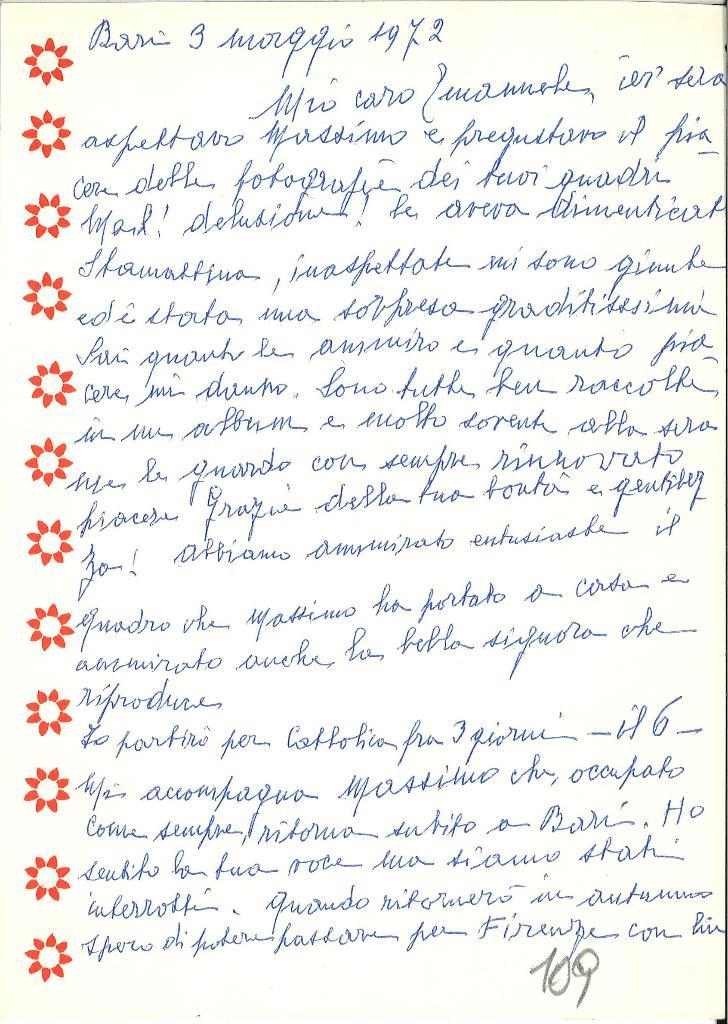 Bari 3 maggio 1972
Mio caro Emanuele, ier sera
aspettavo Massimo e pregustavo il pia-
cere delle fotografie dei tuoi quadri
delusione! le aveva dimenticat
Stamattina, inaspettate mi sono giunte
ed è stata una sorpresa graditissima
Sai quanto le ammiro e quanto pia-
cere mi danno. Sono tutte ben raccolte
in un album e molto sovente alla sera
me le guardo con sempre rinnovato
piacere Grazie della tua bontà e gentilez
za! Abbiamo ammirato entusiaste il
quadro che Massimo ha portato a casa e
ammirato anche la bella signora che
riproduce
Io partirò per Cattolica fra 3 giorni - il 6 -
Mi accompagna Massimo che, occupato
come sempre, ritorna subito a Bari. Ho
sentito la tua voce ma siamo stati
interrotti. Quando ritornerò in autunno
spero di potere passare per Firenze con
109